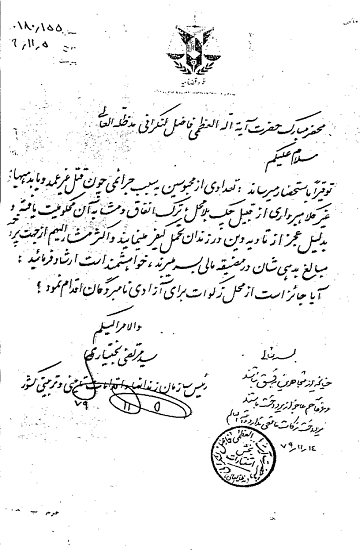 ۰۱۸۰/۱۵۵
۶/۱۱/۵
محضر مبارک حضرت آیة الله العظمی فاضل لنکرانی مدظله العالی
سلام علیکم
توقیراً باستحضار میرساند: تعدادی از محبوسین بسبب جرائمی چون قتل غیر عمد و یا بدهیهای
غیر کلاهبرداری از قبیل چک بلامحل ترک انفاق و مشابه آن محکومیت یافته و
بدلیل عجز از تادیه دین در زندان تحمل کیفر مینمایند و اکثر مشارالیهم از جهت پرداخت
مبالغ بدهی شان در مضیقه مالی بسر میبرند، خواهشمند است ارشاد فرمائید:
آیا جائز است از محل زکوات برای آزادی نامبردگان اقدام نمود؟
والامر الیکم
سید مرتضی بختیاری
رئیس سازمان زندانها و اقدامات تأمینی و تربیتی کشور
۵ ۱۱ ۷۹
بسمه تعالی
پرداخت زکات مانعی ندارد
۷۹/۱۱/۱۴